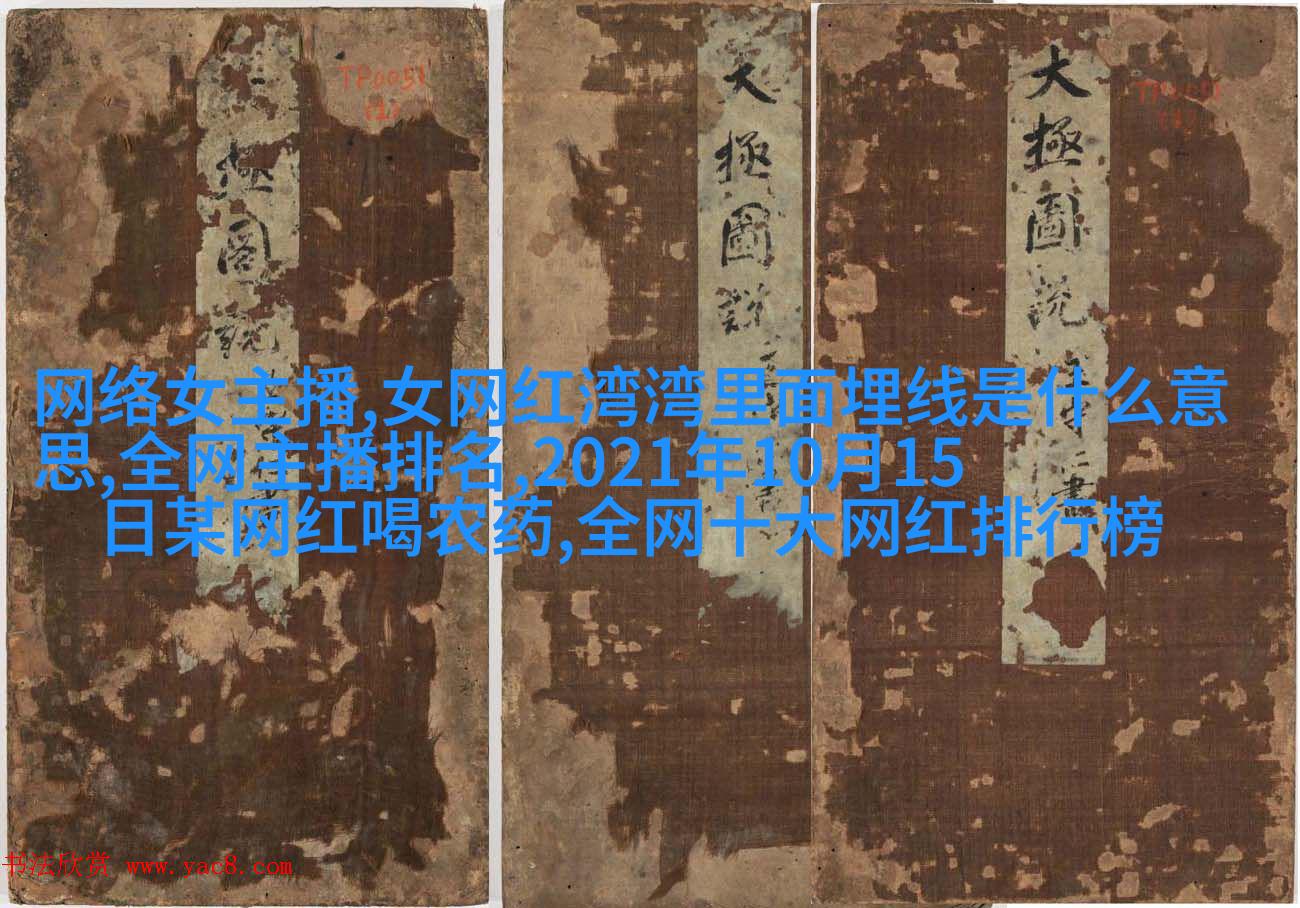 TP0051
(1)
極圖說
大極圖說
大極圖说
書
网络女主播,女网红湾湾里面埋线是什么意
思,全网主播排名,2021年10月15
日某网红喝农药,全网十大网红排行榜
书法欣赏 www.yac8.com